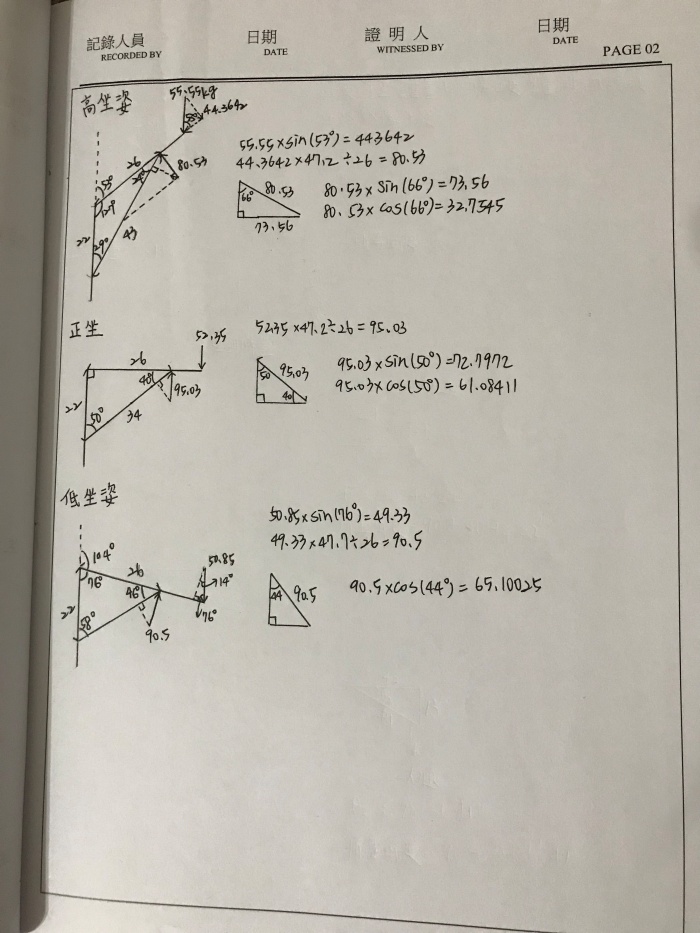 記錄人員
RECORDED BY
日期
DATE
證明人
WITNESSED BY
日期
DATE
PAGE 02
高坐姿
55.55kg
44.3642
53°
127°
26
24°
80.53
22
29°
43
55.55×sin(53°)=443642
44.3642×47.2÷26=80.53
66°
80.53
73.56
80.53×sin(66°)=73.56
80.53×cos(66°)=32.7545
正坐
52.35
26
40°
95.03
22
50°
34
5235×47.2÷26=95.03
50
95.03
40
95.03×sin(50°)=72.7972
95.03×cos(50°)=61.08411
低坐姿
104°
76°
26
46°
22
58°
90.5
50.85
14°
76°
50.85×sin(76°)=49.33
49.33×47.7÷26=90.5
44
90.5
90.5×cos(44°)=65.10025